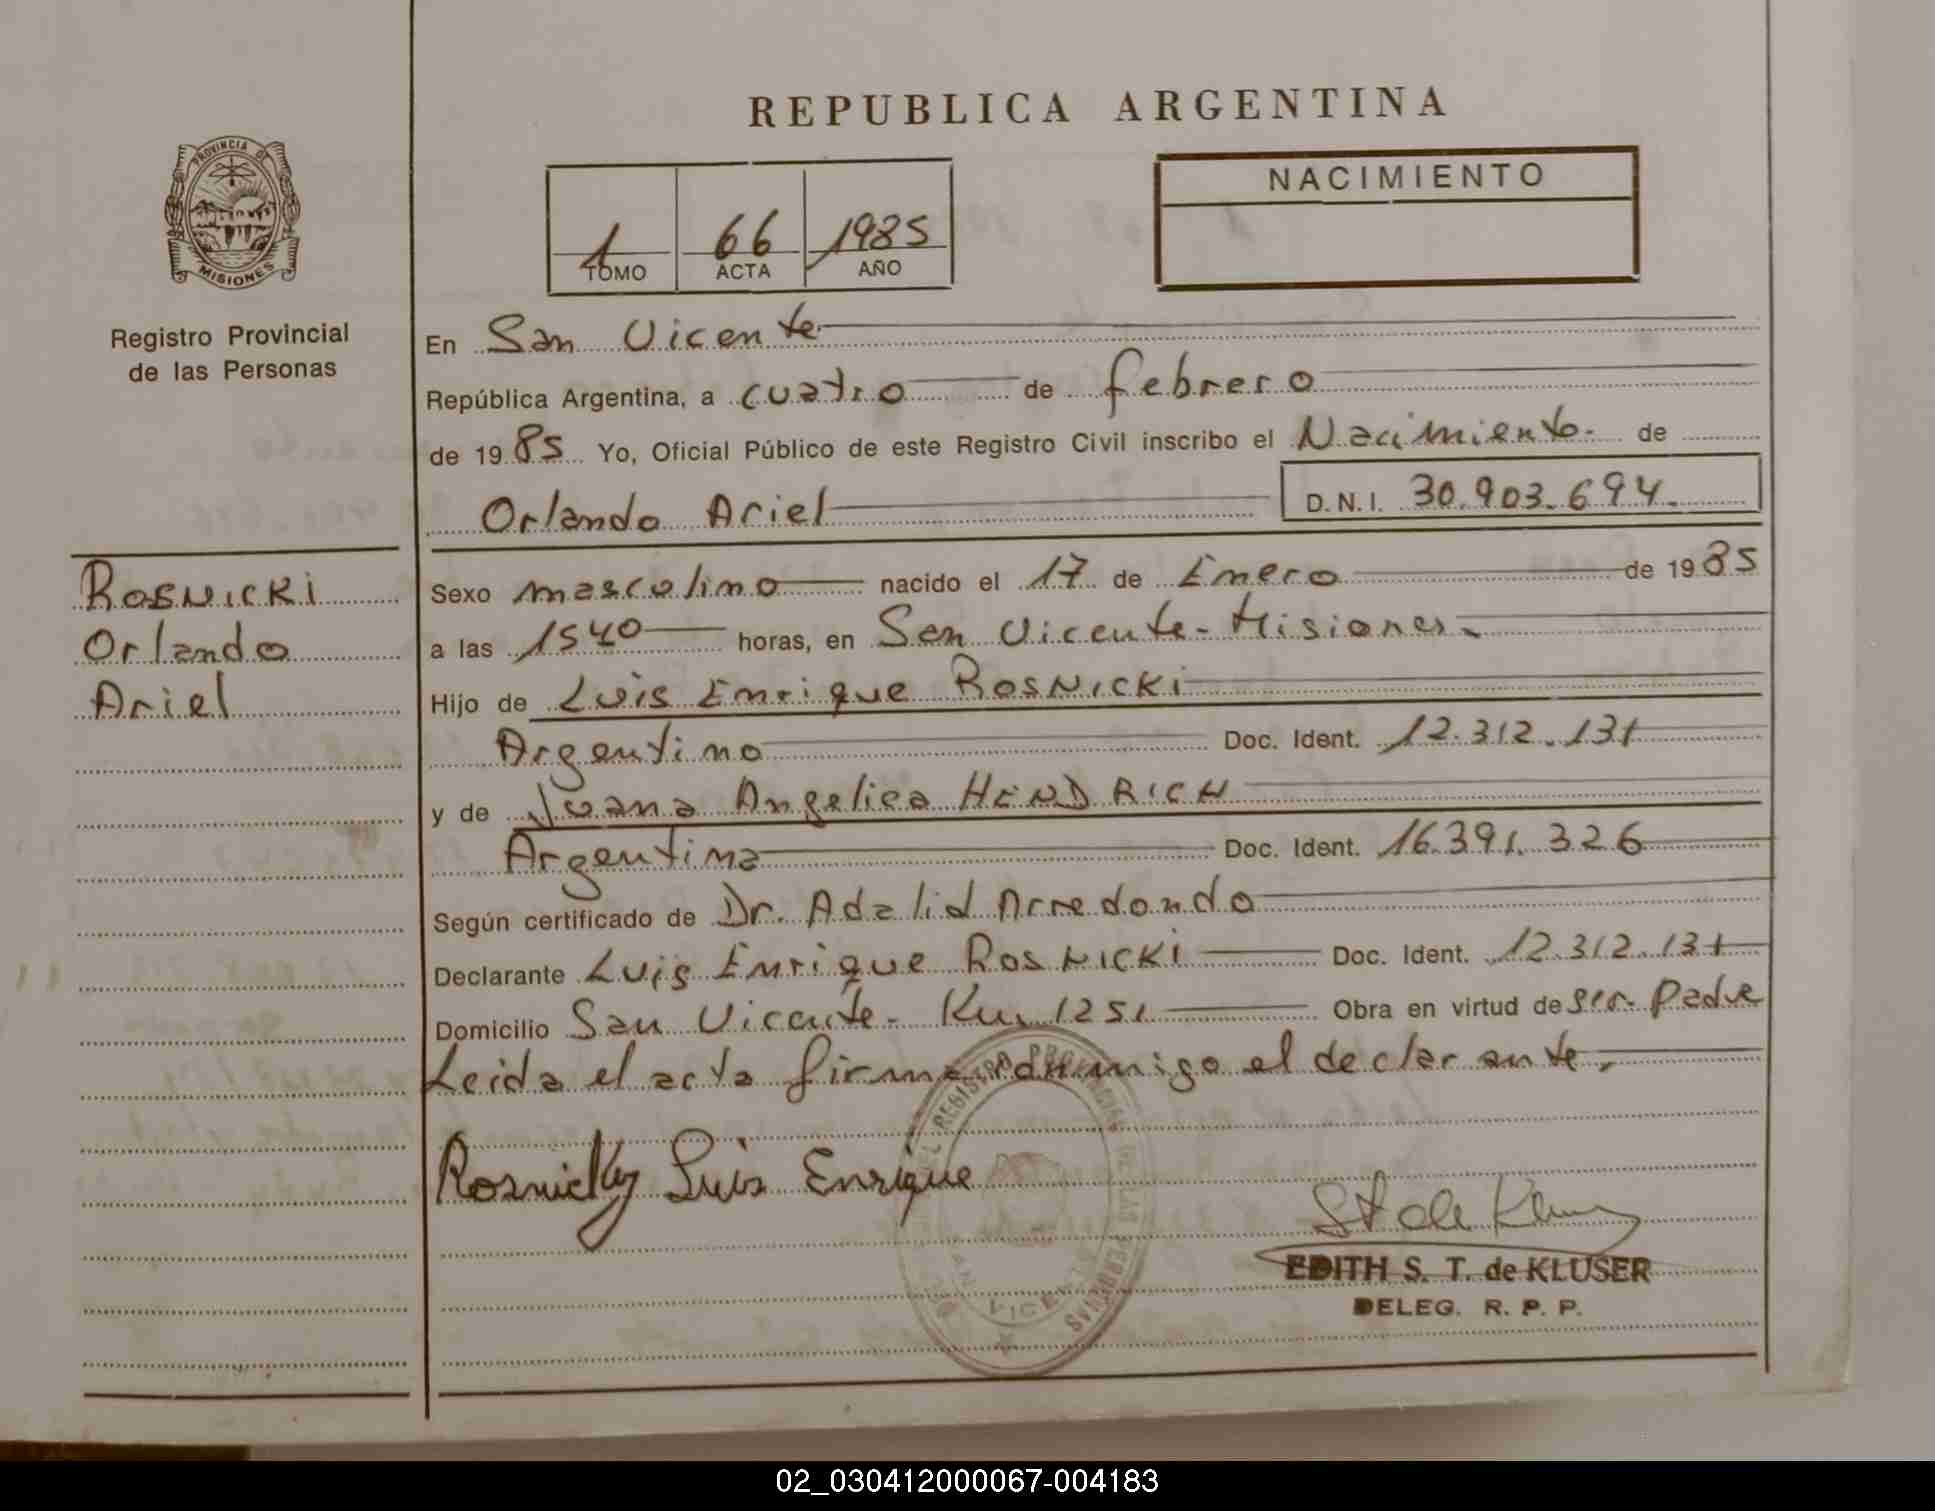 REPUBLICA ARGENTINA
PROVINCIA DE
MISIONES
Registro Provincial
de las Personas
1 66 1985
TOMO ACTA AÑO
NACIMIENTO
En San Vicente
República Argentina, a cuatro de febrero
de 1985 Yo, Oficial Público de este Registro Civil inscribo el Nacimiento de
Orlando Ariel D.N.I. 30.903.694.
Rosnicki
Orlando
Ariel
Sexo masculino nacido el 17 de Enero de 1985
a las 1540 horas, en San Vicente - Misiones.
Hijo de Luis Enrique Rosnicki
Argentino Doc. Ident. 12.312.131
y de Juana Angelica HENDRICH
Argentina Doc. Ident. 16.391.326
Según certificado de Dr. Adalid Arredondo
Declarante Luis Enrique Rosnicki Doc. Ident. 12.312.131
Domicilio San Vicente - Km 1251 Obra en virtud de ser padre
Leida el acta firma conmigo el declarante.
Rosnicky Luis Enrique
DEL REGISTRO PROVINCIAL DE LAS PERSONAS
SAN VICENTE
St de Kluser
EDITH S. T. de KLUSER
DELEG. R. P. P.
02_030412000067-004183